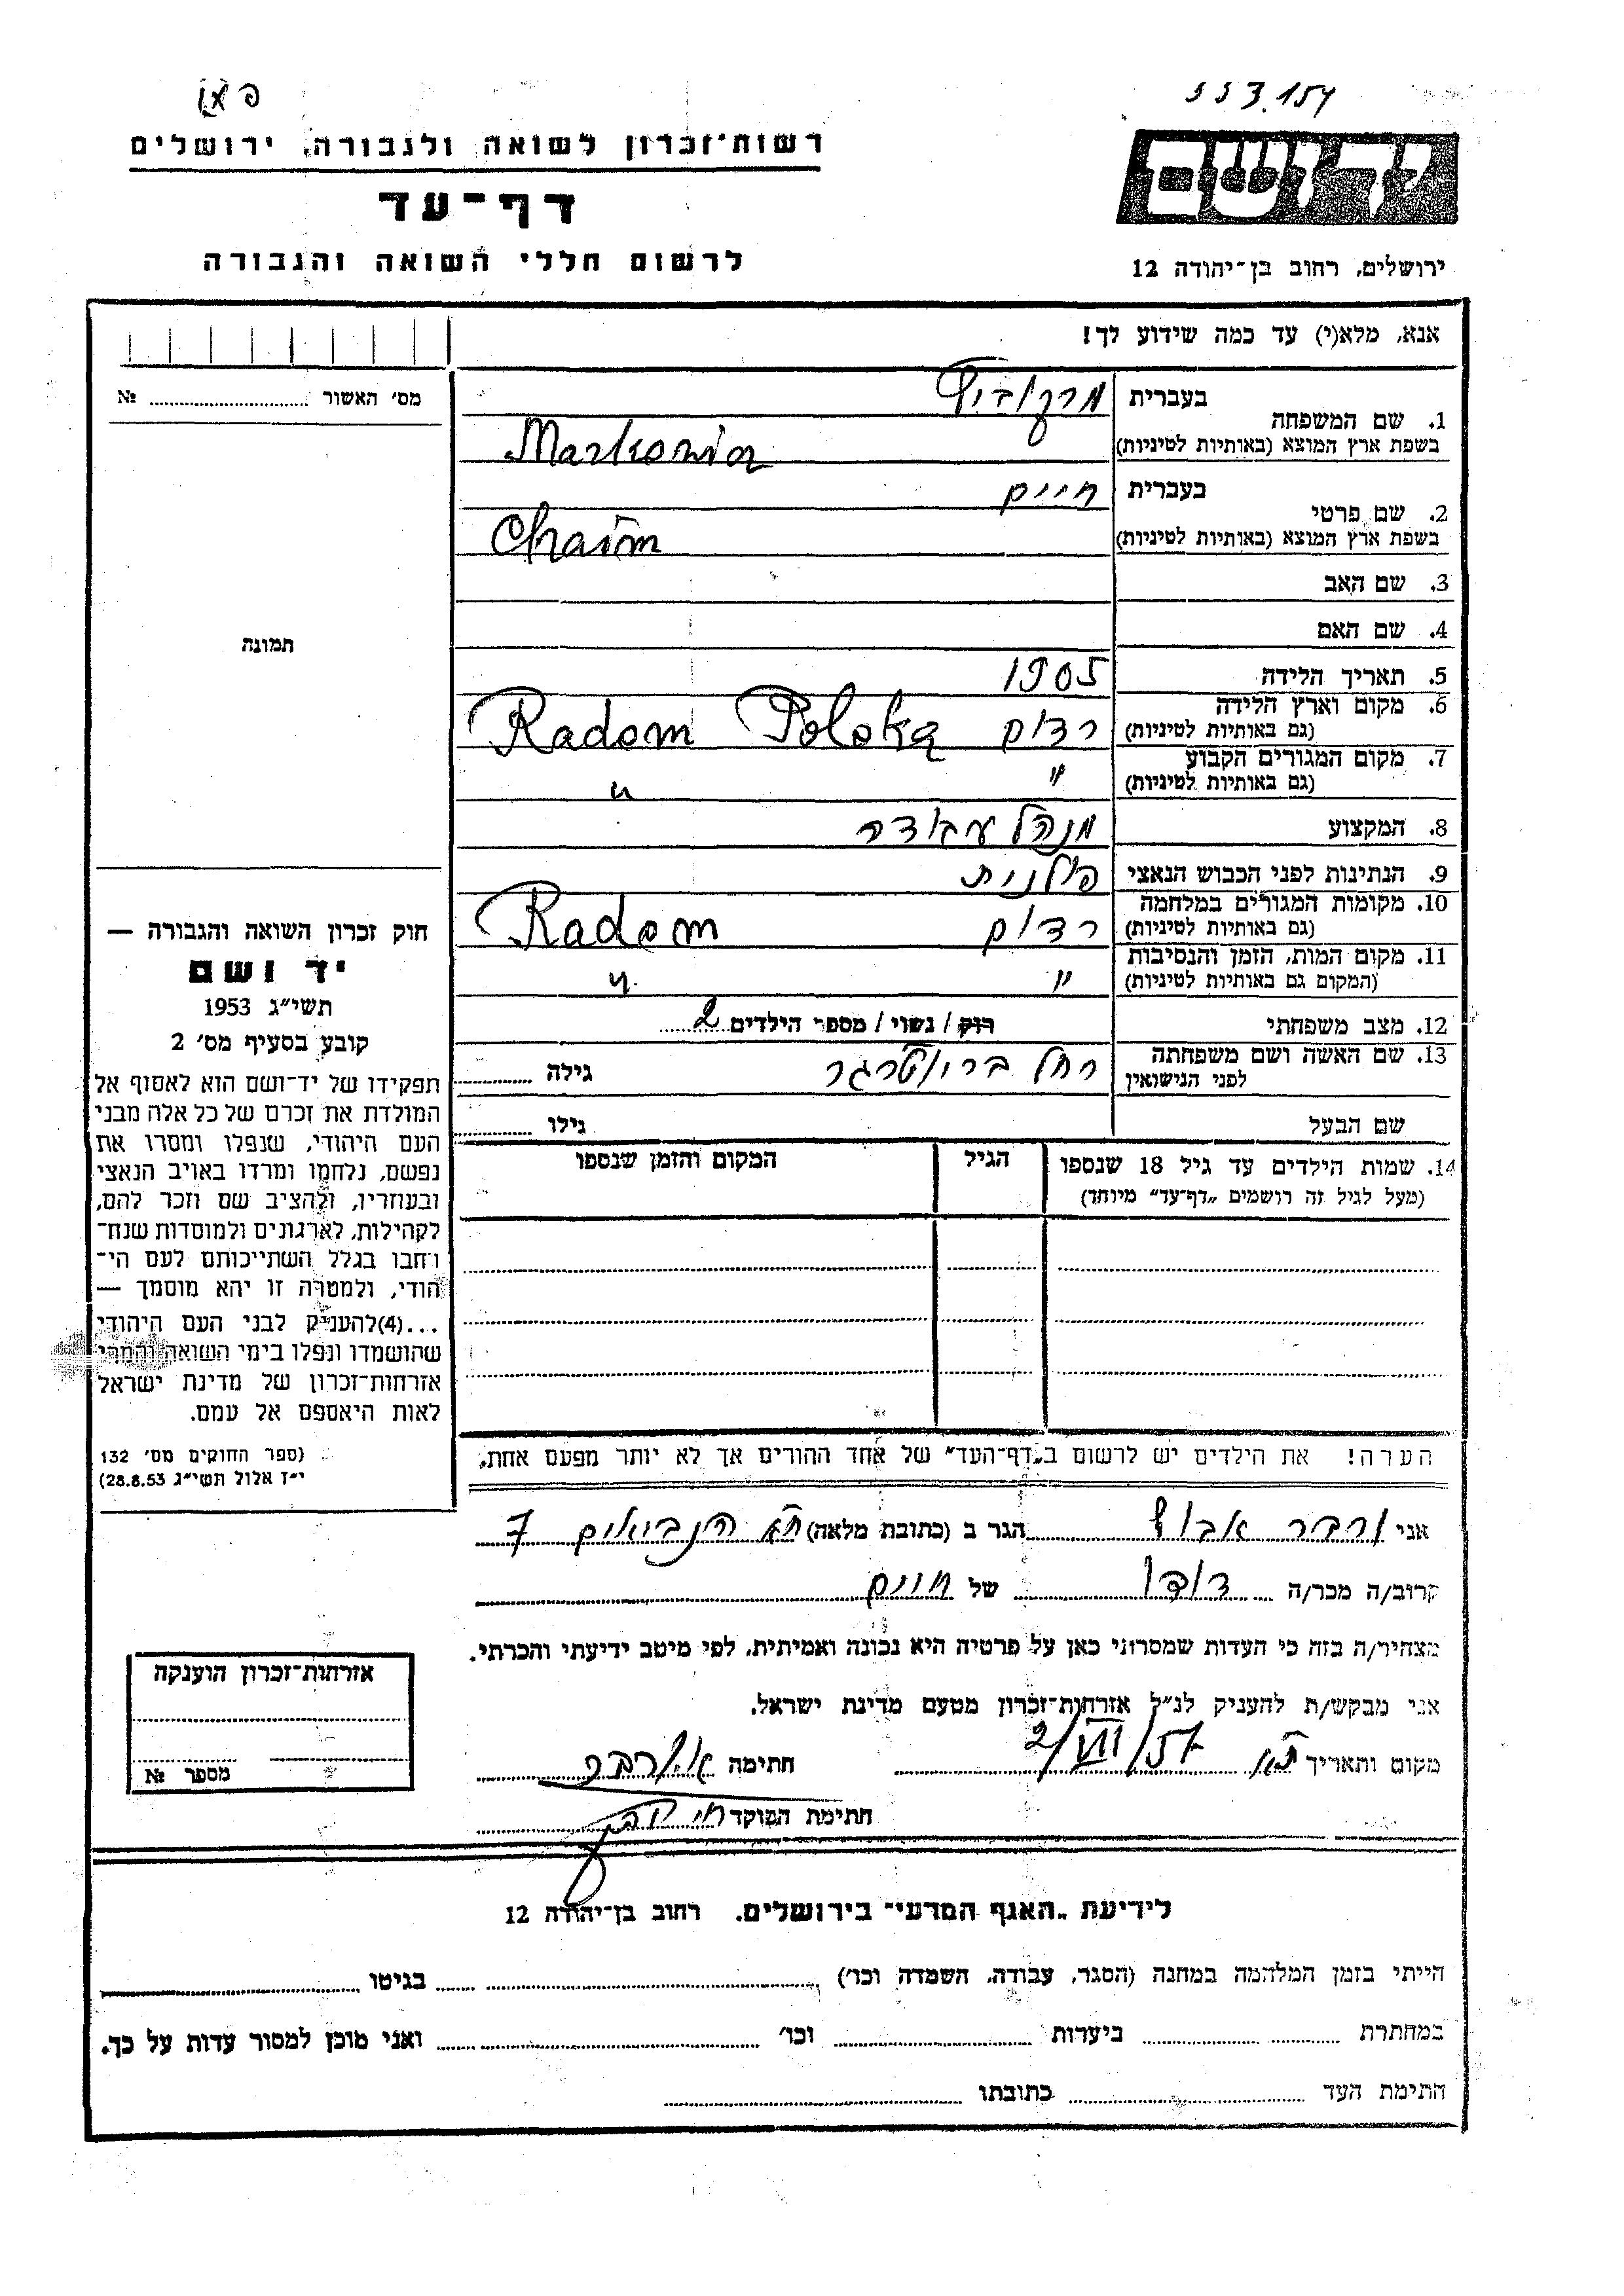 553.154
רשות־זכרון לשואה ולגבורה, ירושלים
דף־עד
לרשום חללי השואה והגבורה
ידושם
ירושלים, רחוב בן־יהודה 12
אנא, מלא(י) עד כמה שידוע לך!
מס׳ האשור № 
1. שם המשפחה
בעברית מרקוביץ
בשפת ארץ המוצא (באותיות לטיניות) Markowicz
2. שם פרטי
בעברית חיים
בשפת ארץ המוצא (באותיות לטיניות) Chaim
3. שם האב
4. שם האם
5. תאריך הלידה 1905
6. מקום וארץ הלידה
(גם באותיות לטיניות) רדום Radom Polska
7. מקום המגורים הקבוע
(גם באותיות לטיניות) " "
8. המקצוע מנהל עבודה
9. הנתינות לפני הכבוש הנאצי פולנית
10. מקומות המגורים במלחמה
(גם באותיות לטיניות) רדום Radom
11. מקום המות, הזמן והנסיבות
(המקום גם באותיות לטיניות) " "
12. מצב משפחתי רוק / נשוי / מספר הילדים 2
13. שם האשה ושם משפחתה
לפני הנישואין רחל גילה
שם הבעל גילו
14. שמות הילדים עד גיל 18 שנספו הגיל המקום והזמן שנספו
(מעל לגיל זה רושמים „דף־עד״ מיוחד)
הערה! את הילדים יש לרשום ב„דף־העד״ של אחד ההורים אך לא יותר מפעם אחת.
תמונה
חוק זכרון השואה והגבורה —
יד ושם
תשי״ג 1953
קובע בסעיף מס׳ 2
תפקידו של יד־ושם הוא לאסוף אל
המולדת את זכרם של כל אלה מבני
העם היהודי, שנפלו ומסרו את
נפשם, נלחמו ומרדו באויב הנאצי
ובעוזריו, ולהציב שם וזכר להם,
לקהילות, לארגונים ולמוסדות שנח־
רבו בגלל השתייכותם לעם הי־
הודי, ולמטרה זו יהא מוסמך —
...(4)להעניק לבני העם היהודי
שהושמדו ונפלו בימי השואה והמרי
אזרחות־זכרון של מדינת ישראל
לאות היאספם אל עמם.
(ספר החוקים מס׳ 132
י״ז אלול תשי״ג 28.8.53)
אני הגר ב (כתובת מלאה) ת״א הנביאים 7
קרוב/ה מכר/ה דודו של חיים
מצהיר/ה בזה כי העדות שמסרתי כאן על פרטיה היא נכונה ואמיתית, לפי מיטב ידיעתי והכרתי.
אני מבקש/ת להעניק לנ״ל אזרחות־זכרון מטעם מדינת ישראל.
מקום ותאריך ת״א 2/VII/57 חתימה
חתימת הפוקד
אזרחות־זכרון הוענקה
מספר №
לידיעת „האגף המדעי״ בירושלים, רחוב בן־יהודה 12
הייתי בזמן המלחמה במחנה (הסגר, עבודה, השמדה וכו׳) בגיטו
במחתרת ביערות וכו׳ ואני מוכן למסור עדות על כך.
חתימת העד כתובתו